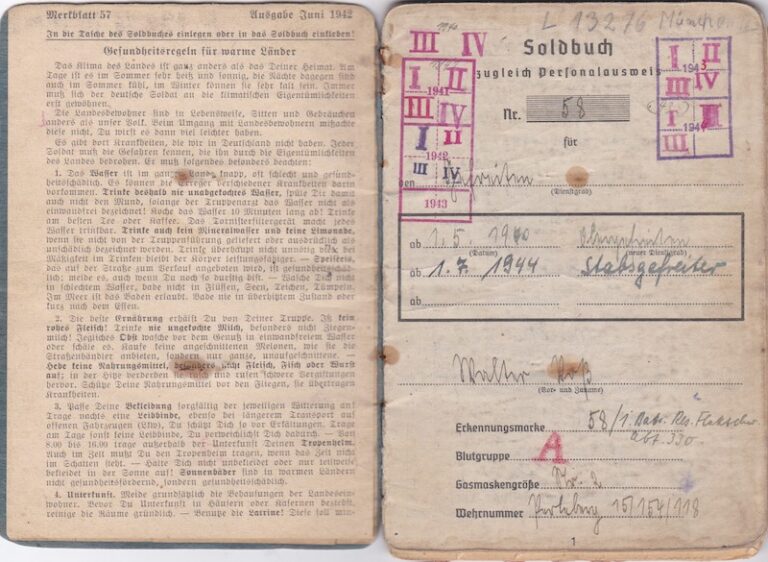 Merkblatt 57 Ausgabe Juni 1942
In die Tasche des Soldbuches einlegen oder in das Soldbuch einkleben!
Gesundheitsregeln für warme Länder
Das Klima des Landes ist ganz anders als das Deiner Heimat. Am
Tage ist es im Sommer sehr heiß und sonnig, die Nächte dagegen sind
auch im Sommer kühl, im Winter können sie sehr kalt sein. Immer
muß sich der deutsche Soldat an die klimatischen Eigentümlichkeiten
erst gewöhnen.
Die Landesbewohner sind in Lebensweise, Sitten und Gebräuchen
anders als unser Volk. Beim Umgang mit Landesbewohnern mißachte
diese nicht. Du wirst es dann viel leichter haben.
Es gibt dort Krankheiten, die wir in Deutschland nicht haben. Jeder
Soldat muß die Gefahren kennen, die ihn durch die Eigentümlichkeiten
des Landes bedrohen. Er muß folgendes besonders beachten:
1. Das Wasser ist im ganzen Lande knapp, oft schlecht und gesund-
heitsschädlich. Es können die Erreger verschiedener Krankheiten darin
vorkommen. Trinke deshalb nie unabgekochtes Wasser, spüle Dir damit
auch nicht den Mund, solange der Truppenarzt das Wasser nicht als
einwandfrei bezeichnet! Koche das Wasser 10 Minuten lang ab! Trinke
am besten Tee oder Kaffee. Das Tornisterfiltergerät macht jedes
Wasser trinkbar. Trinke auch kein Mineralwasser und keine Limonade,
wenn sie nicht von der Truppenführung geliefert oder ausdrücklich als
unschädlich bezeichnet werden. Trinke überhaupt nicht unnötig viel, bei
Mäßigkeit im Trinken bleibt der Körper leistungsfähiger. — Speiseeis,
das auf der Straße zum Verkauf angeboten wird, ist gesundheitsschäd-
lich; meide es, auch wenn Du noch so durstig bist. — Wasche Dich nicht
in schlechtem Wasser, bade nicht in Flüssen, Seen, Teichen, Tümpeln.
Im Meer ist das Baden erlaubt. Bade nie in überhitztem Zustand oder
kurz nach dem Essen.
2. Die beste Ernährung erhältst Du von Deiner Truppe. Iß kein
rohes Fleisch! Trinke nie ungekochte Milch, besonders nicht Ziegen-
milch! Jegliches Obst wasche vor dem Genuß in einwandfreiem Wasser
oder schäle es. Kaufe keine angeschnittenen Melonen, wie sie die
Straßenhändler anbieten, sondern nur ganze, unaufgeschnittene. —
Hebe keine Nahrungsmittel, besonders nicht Fleisch, Fisch oder Wurst
auf; in der Hitze verderben sie rasch und rufen schwere Vergiftungen
hervor. Schütze Deine Nahrungsmittel vor den Fliegen, sie übertragen
Krankheiten.
3. Passe Deine Bekleidung sorgfältig der jeweiligen Witterung an!
Trage nachts eine Leibbinde, ebenso bei längerem Transport auf
offenen Fahrzeugen (Lkw), Du schützt Dich so vor Erkältungen. Trage
am Tage sonst keine Leibbinde, Du verweichlichst Dich dadurch. — Von
8.00 bis 16.00 trage außerhalb der Unterkunft Deinen Tropenhelm.
Auch im Zelt mußt Du den Tropenhelm tragen, wenn das Zelt nicht
im Schatten steht. — Halte Dich nicht unbekleidet oder nur teilweise
bekleidet in der Sonne auf! Sonnenbäder sind in warmen Ländern
nicht gesundheitsfördernd, sondern gesundheitsschädlich.
4. Unterkunft. Meide grundsätzlich die Behausungen der Landesein-
wohner. Bevor Du Unterkunft in Häusern oder Kasernen beziehst,
reinige die Räume gründlich. — Benutze die Latrine! Diese soll min-
L 13276
III IV
Soldbuch
zugleich Personalausweis
Nr. 58
für
den Gefreiten
(Dienstgrad)
I II
1941
III IV
I II
1942
III IV
1943
I II
1943
III IV
I II
1944
III
ab 1.5. 1940 Obergefreiten
(Datum) (neuer Dienstgrad)
ab 1.7. 1944 Stabsgefreiter
ab
Walter Roß
(Vor- und Zuname)
Erkennungsmarke 58/1. Battr. Res. Flaksch.
Abt. 330
Blutgruppe A
Gasmaskengröße Nr. 2
Wehrnummer Perleberg 15/154/118
1